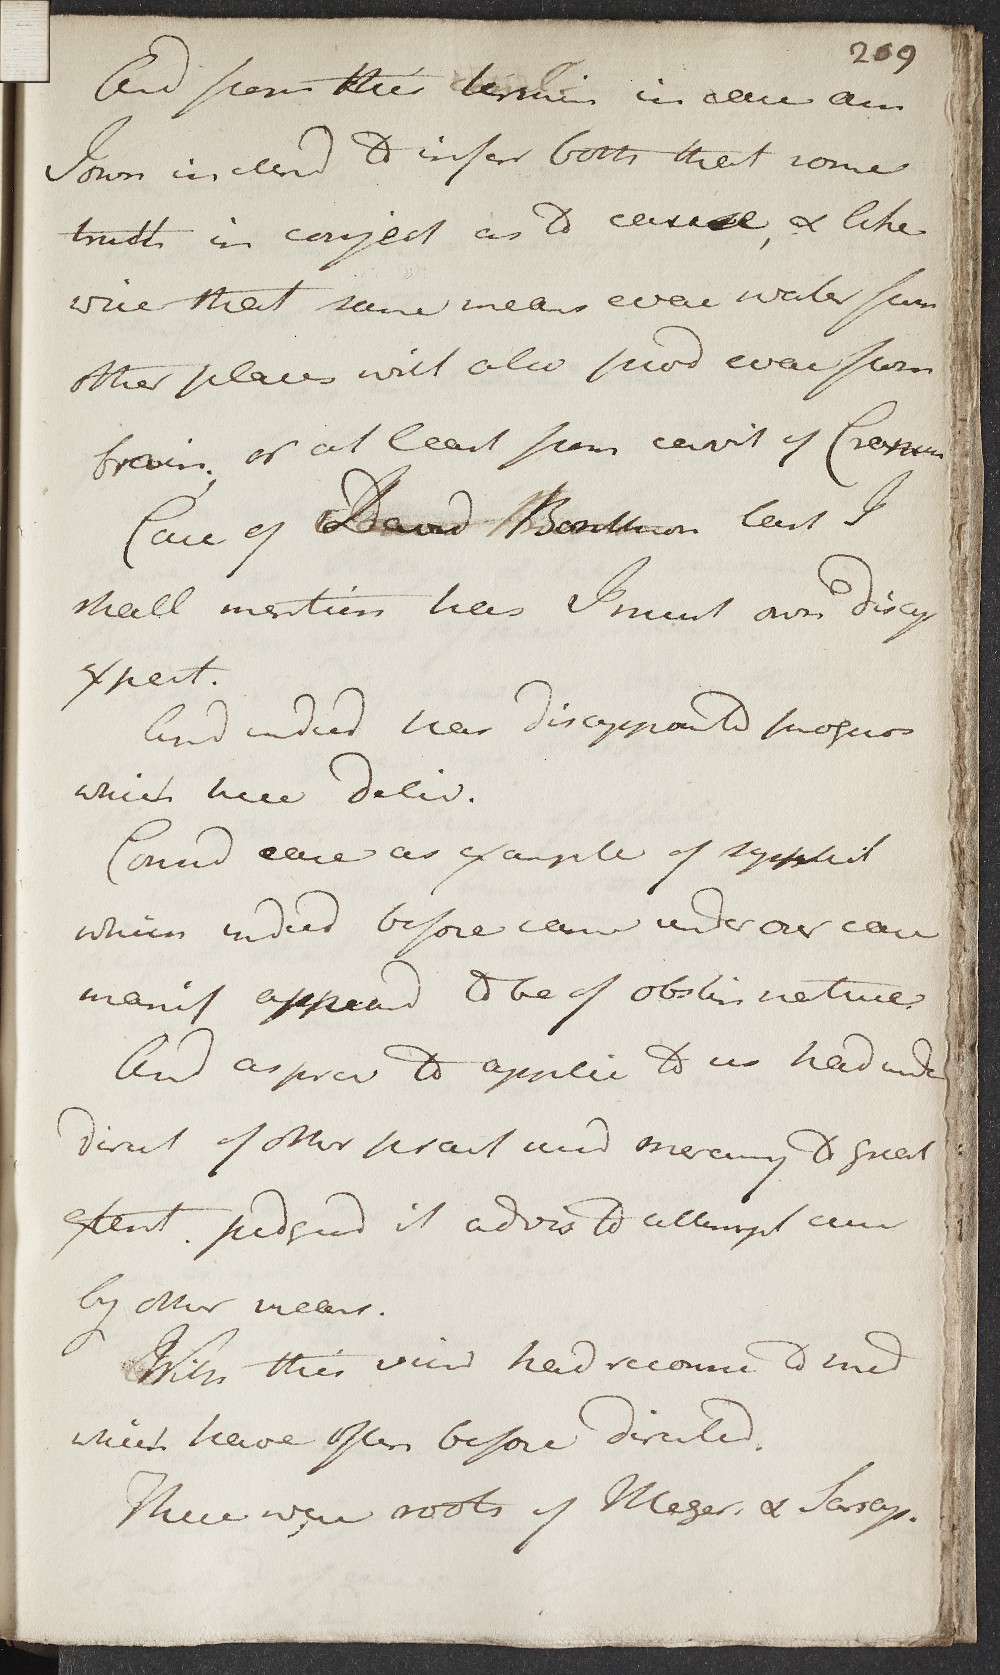 269
And from this termin in case am
I own inclend to infer both that some
truth in conject as to cause, & like
wise that same means evac water from
other places will also prod evac from
brain, or at least from cavit of Cranium
Case of David Bosthwon last I
shall mention has I must own disap
expect.
And indeed has disappointd prognos
which here deliv.
Consid case as example of syphil
which indeed before came under our care
manif appeard to be of obstin nature.
And as prev to applic to us had under
direct of other pract used mercury to great
extent. judged it advis to attempt cure
by other means.
With this view had recourse to med
which have often before directed.
These were roots of Mezer. & Sarsap.